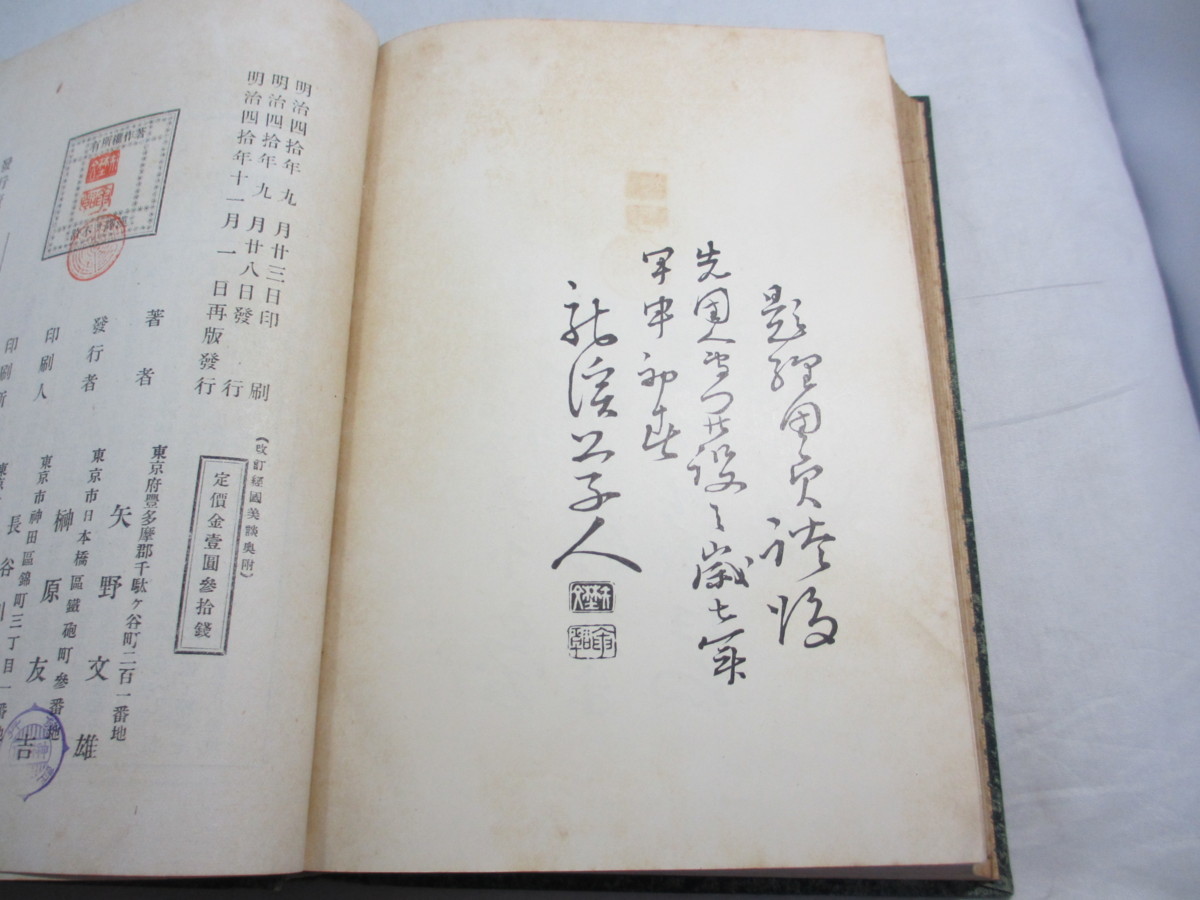 題經國美談後
先國會開設之歳七年
甲申初春
龍溪學人
明治四拾年九月廿三日印刷
明治四拾年九月廿八日發行
明治四拾年十一月一日再版發行
(改訂經國美談奥附)
定價金壹圓參拾錢
著作權所有
著者
東京府豐多摩郡千駄ヶ谷町二百一番地
矢野文雄
發行者
東京市日本橋區鐵砲町參番地
榊原友吉
印刷人
東京市神田區錦町三丁目一番地
長谷川
印刷所
發行